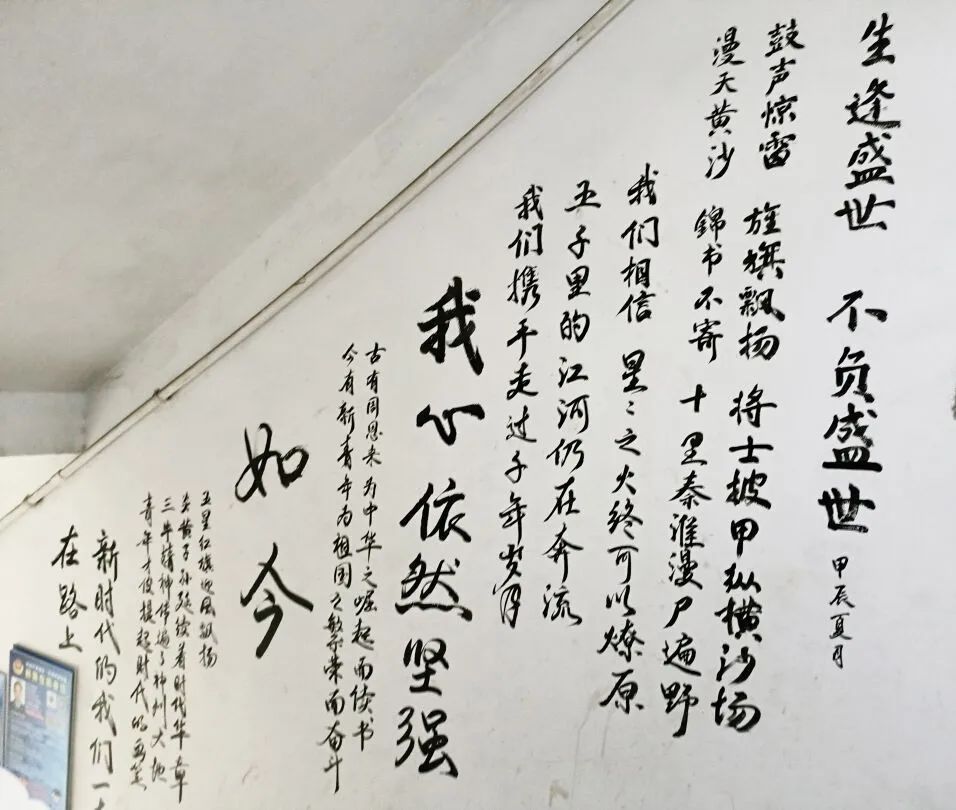 生逢盛世 不负盛世
甲辰夏月
鼓声惊雷 旌旗飘扬 将士披甲纵横沙场
漫天黄沙 錦书不寄 十里秦淮漫尸遍野
我们相信 星々之火终可以燎原
五千里的江河仍在奔流
我们携手走过千年岁月
我心依然坚强
古有周恩来为中华之崛起而读书
今有新青年为祖国之繁荣而奋斗
如今
五星红旗迎风飘扬
炎黄子孙延续着时代华章
三牛精神传遍了神州大地
青年才俊提起时代的画笔
新时代的我们一
在路上